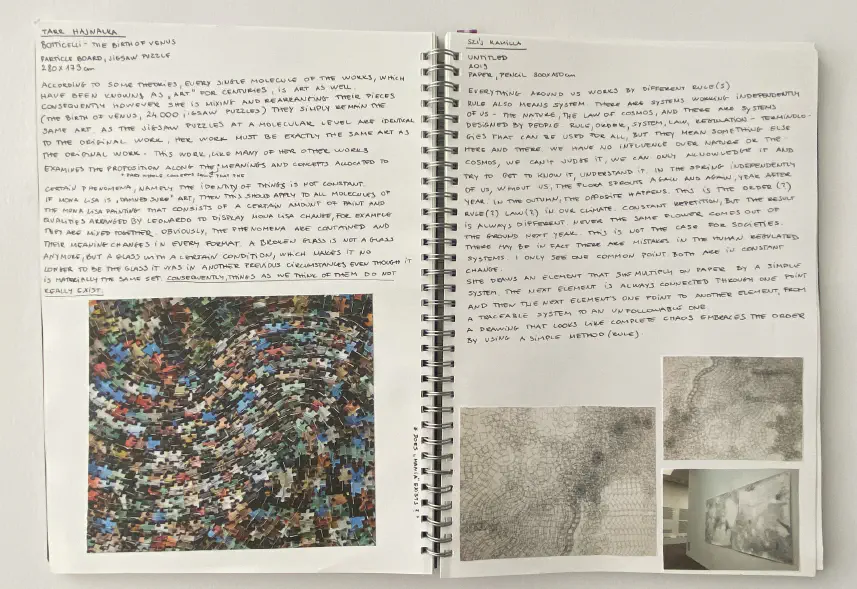 TARR HAJNALKA
BOTTICELLI - THE BIRTH OF VENUS
PARTICLE BOARD, JIGSAW PUZZLE
280 X 173 cm
ACCORDING TO SOME THEORIES, EVERY SINGLE MOLECULE OF THE WORKS, WHICH
HAVE BEEN KNOWING AS „ART" FOR CENTURIES, IS ART AS WELL.
CONSEQUENTLY HOWEVER SHE IS MIXING AND REARRANGING THEIR PIECES
(THE BIRTH OF VENUS, 24 000 JIGSAW PUZZLES) THEY SIMPLY REMAIN THE
SAME ART AS THE JIGSAW PUZZLES AT A MOLECULAR LEVEL ARE IDENTICAL
TO THE ORIGINAL WORK, HER WORK MUST BE EXACTLY THE SAME ART AS
THE ORIGINAL WORK. THIS WORK, LIKE MANY OF HER OTHER WORKS
EXAMINES THE PROPOSITION ALONG THE MEANINGS AND CONCEPTS ALLOCATED TO
CERTAIN PHENOMENA, NAMELY THE IDENTITY OF THINGS IS NOT CONSTANT.
IF MONA LISA IS „DAMNED SURE" ART, THEN THIS SHOULD APPLY TO ALL MOLECULES OF
THE MONA LISA PAINTING THAT CONSISTS OF A CERTAIN AMOUNT OF PAINT AND
QUALITIES ARRANGED BY LEONARDO TO DISPLAY MONA LISA CHANGE, FOR EXAMPLE
THEY ARE MIXED TOGETHER. OBVIOUSLY, THE PHENOMENA ARE CONTAINED AND
THEIR MEANING CHANGES IN EVERY FORMAT. A BROKEN GLASS IS NOT A GLASS
ANYMORE, BUT A GLASS WITH A CERTAIN CONDITION, WHICH MAKES IT NO
LONGER TO BE THE GLASS IT WAS IN ANOTHER PREVIOUS CIRCUMSTANCES EVEN THOUGH IT
IS MATERIALLY THE SAME SET. CONSEQUENTLY, THINGS AS WE THINK OF THEM DO NOT
REALLY EXIST.
* DOES „MANIA" EXISTS?"
SZÍJ KAMILLA
UNTITLED
2019
PAPER, PENCIL 300X150 cm
EVERYTHING AROUND US WORKS BY DIFFERENT RULE(S)
RULE ALSO MEANS SYSTEM. THERE ARE SYSTEMS WORKING INDEPENDENTLY
OF US - THE NATURE, THE LAW OF COSMOS, AND THERE ARE SYSTEMS
DESIGNED BY PEOPLE RULE, ORDER, SYSTEM, LAW, REGULATION - TERMINOLO-
GIES THAT CAN BE USED FOR ALL, BUT THEY MEAN SOMETHING ELSE
HERE AND THERE. WE HAVE NO INFLUENCE OVER NATURE OR THE
COSMOS, WE CAN'T JUDGE IT, WE CAN ONLY ACKNOWLEDGE IT AND
TRY TO GET TO KNOW IT, UNDERSTAND IT. IN THE SPRING INDEPENDENTLY
OF US, WITHOUT US, THE FLORA SPROUTS AGAIN AND AGAIN, YEAR AFTER
YEAR. IN THE OUTUMN, THE OPPOSITE HAPPENS. THIS IS THE ORDER (?)
RULE(?) LAW(?) IN OUR CLIMATE. CONSTANT REPETITION, BUT THE RESULT
IS ALWAYS DIFFERENT. NEVER THE SAME FLOWER COMES OUT OF
THE GROUND NEXT YEAR. THIS IS NOT THE CASE FOR SOCIETIES.
THERE MAY BE IN FACT THERE ARE MISTAKES IN THE HUMAN REGULATED
SYSTEMS. I ONLY SEE ONE COMMON POINT. BOTH ARE IN CONSTANT
CHANGE.
SHE DRAWS AN ELEMENT THAT SHE MULTIPLY ON PAPER BY A SIMPLE
SYSTEM. THE NEXT ELEMENT IS ALWAYS CONNECTED THROUGH ONE POINT
AND THEN THE NEXT ELEMENT'S ONE POINT TO ANOTHER ELEMENT, FROM
A TRACEABLE SYSTEM TO AN UNFOLLOWABLE ONE.
A DRAWING THAT LOOKS LIKE COMPLETE CHAOS EMBRACES THE ORDER
BY USING A SIMPLE METHOD (RULE)